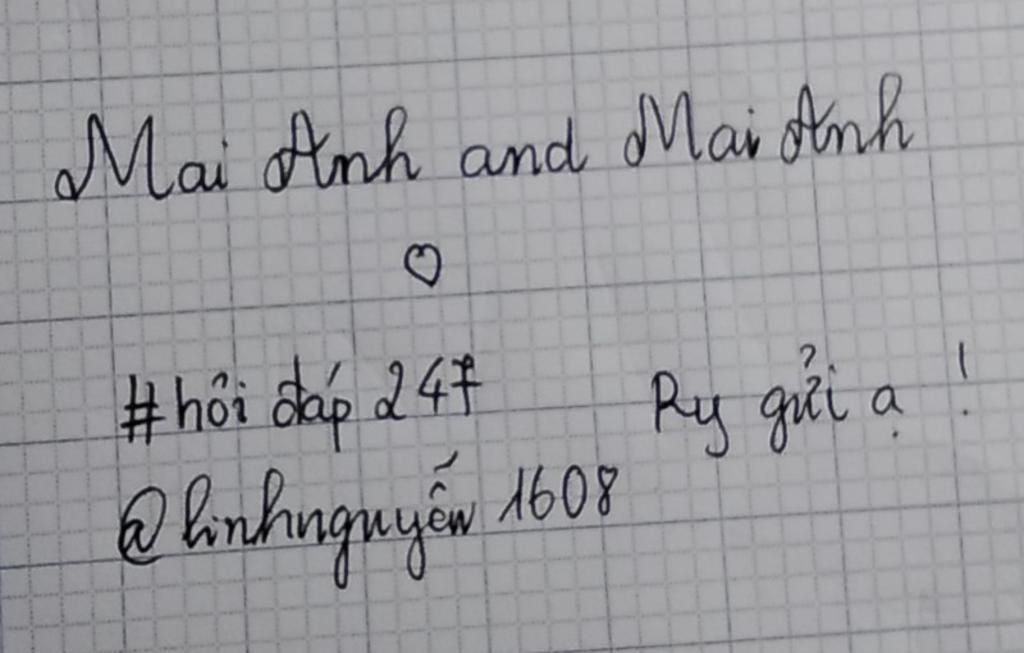 Mai Anh and Mai Anh
♡
#hỏi đáp 247 Ry gửi ạ !
@linhnguyễn 1608